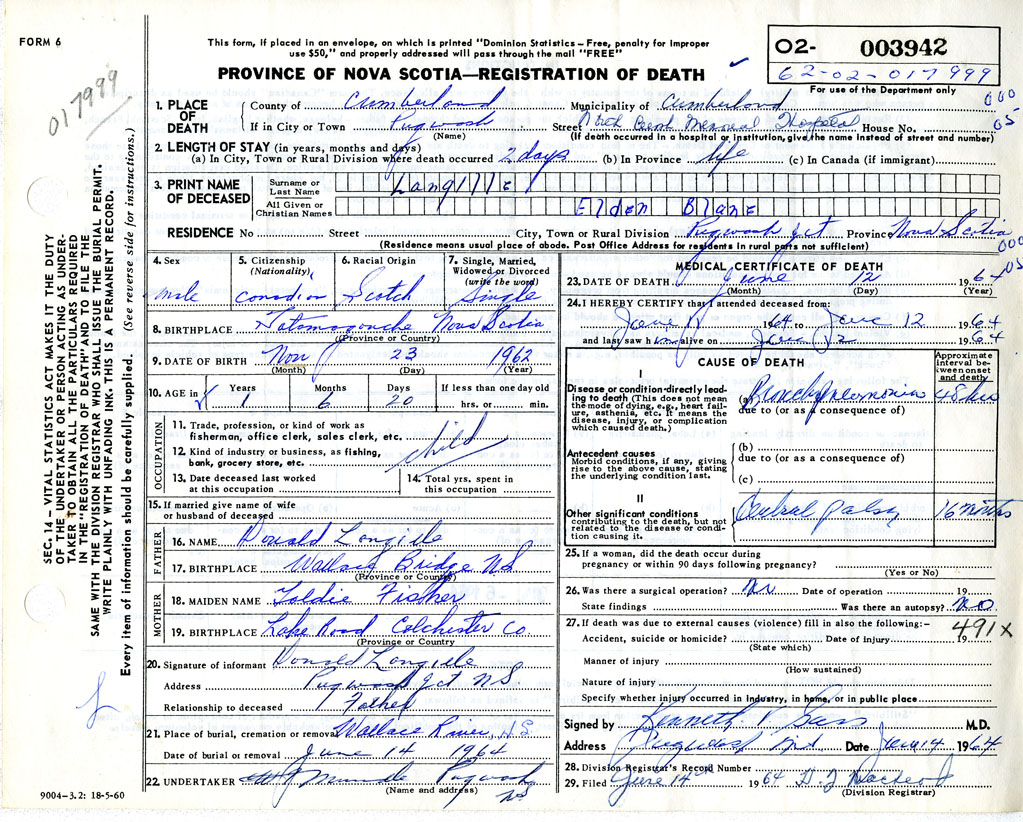 FORM 6
This form, if placed in an envelope, on which is printed "Dominion Statistics – Free, penalty for improper
use $50," and properly addressed will pass through the mail "FREE"
PROVINCE OF NOVA SCOTIA—REGISTRATION OF DEATH
O2- 003942
62-02-017999
For use of the Department only
017999
000
05
1. PLACE OF DEATH
County of Cumberland Municipality of Cumberland
If in City or Town Pugwash Street Memorial Hospital House No.
(Name) (If death occurred in a hospital or institution, give the name instead of street and number)
2. LENGTH OF STAY (in years, months and days)
(a) In City, Town or Rural Division where death occurred 2 days (b) In Province life (c) In Canada (if immigrant)
3. PRINT NAME OF DECEASED
Surname or Last Name Langille
All Given or Christian Names Elden Blane
RESIDENCE No Street City, Town or Rural Division Pugwash Jct Province Nova Scotia
(Residence means usual place of abode. Post Office Address for residents in rural parts not sufficient)
000
05
4. Sex male
5. Citizenship (Nationality) Canadian
6. Racial Origin Scotch
7. Single, Married, Widowed or Divorced (write the word) Single
8. BIRTHPLACE Tatamagouche Nova Scotia
(Province or Country)
9. DATE OF BIRTH Nov 23 1962
(Month) (Day) (Year)
10. AGE in Years Months Days If less than one day old
1 6 20 hrs. or min.
OCCUPATION
11. Trade, profession, or kind of work as fisherman, office clerk, sales clerk, etc. child
12. Kind of industry or business, as fishing, bank, grocery store, etc.
13. Date deceased last worked at this occupation
14. Total yrs. spent in this occupation
15. If married give name of wife or husband of deceased
FATHER
16. NAME Donald Langille
17. BIRTHPLACE Wallace Bridge NS
(Province or Country)
MOTHER
18. MAIDEN NAME Goldie Fisher
19. BIRTHPLACE Lake Road Colchester Co.
(Province or Country)
20. Signature of informant Donald Langille
Address Pugwash Jct NS
Relationship to deceased Father
21. Place of burial, cremation or removal Wallace River N.S.
Date of burial or removal June 14 1964
22. UNDERTAKER Pugwash
(Name and address) NS
9004–3.2: 18-5-60
MEDICAL CERTIFICATE OF DEATH
23. DATE OF DEATH June 12 1964
(Month) (Day) (Year)
24. I HEREBY CERTIFY that I attended deceased from:
June 11 1964 to June 12 1964
and last saw him alive on June 12 1964
CAUSE OF DEATH
Approximate interval between onset and death
I
Disease or condition directly leading to death (This does not mean the mode of dying, e.g., heart failure, asthenia, etc. It means the disease, injury, or complication which caused death.)
(a) Bronchopneumonia 48 hrs
due to (or as a consequence of)
Antecedent causes
Morbid conditions, if any, giving rise to the above cause, stating the underlying condition last.
(b)
due to (or as a consequence of)
(c)
II
Other significant conditions contributing to the death, but not related to the disease or condition causing it.
Cerebral palsy 16 months
25. If a woman, did the death occur during pregnancy or within 90 days following pregnancy?
(Yes or No)
26. Was there a surgical operation? No Date of operation 19
State findings Was there an autopsy? NO
27. If death was due to external causes (violence) fill in also the following:–
491x
Accident, suicide or homicide? Date of injury 19
(State which)
Manner of injury
(How sustained)
Nature of injury
Specify whether injury occurred in industry, in home, or in public place
Signed by Kenneth M.D.
Address Pugwash NS Date June 14 1964
28. Division Registrar's Record Number
29. Filed June 14 1964
(Division Registrar)
SEC. 14 – VITAL STATISTICS ACT MAKES IT THE DUTY
OF THE UNDERTAKER OR PERSON ACTING AS UNDER-
TAKER TO OBTAIN ALL THE PARTICULARS REQUIRED
IN THE "REGISTRATION OF DEATH" AND FILE THE
SAME WITH THE DIVISION REGISTRAR WHO SHALL ISSUE THE BURIAL PERMIT.
WRITE PLAINLY WITH UNFADING INK. THIS IS A PERMANENT RECORD.
Every item of information should be carefully supplied. (See reverse side for instructions.)